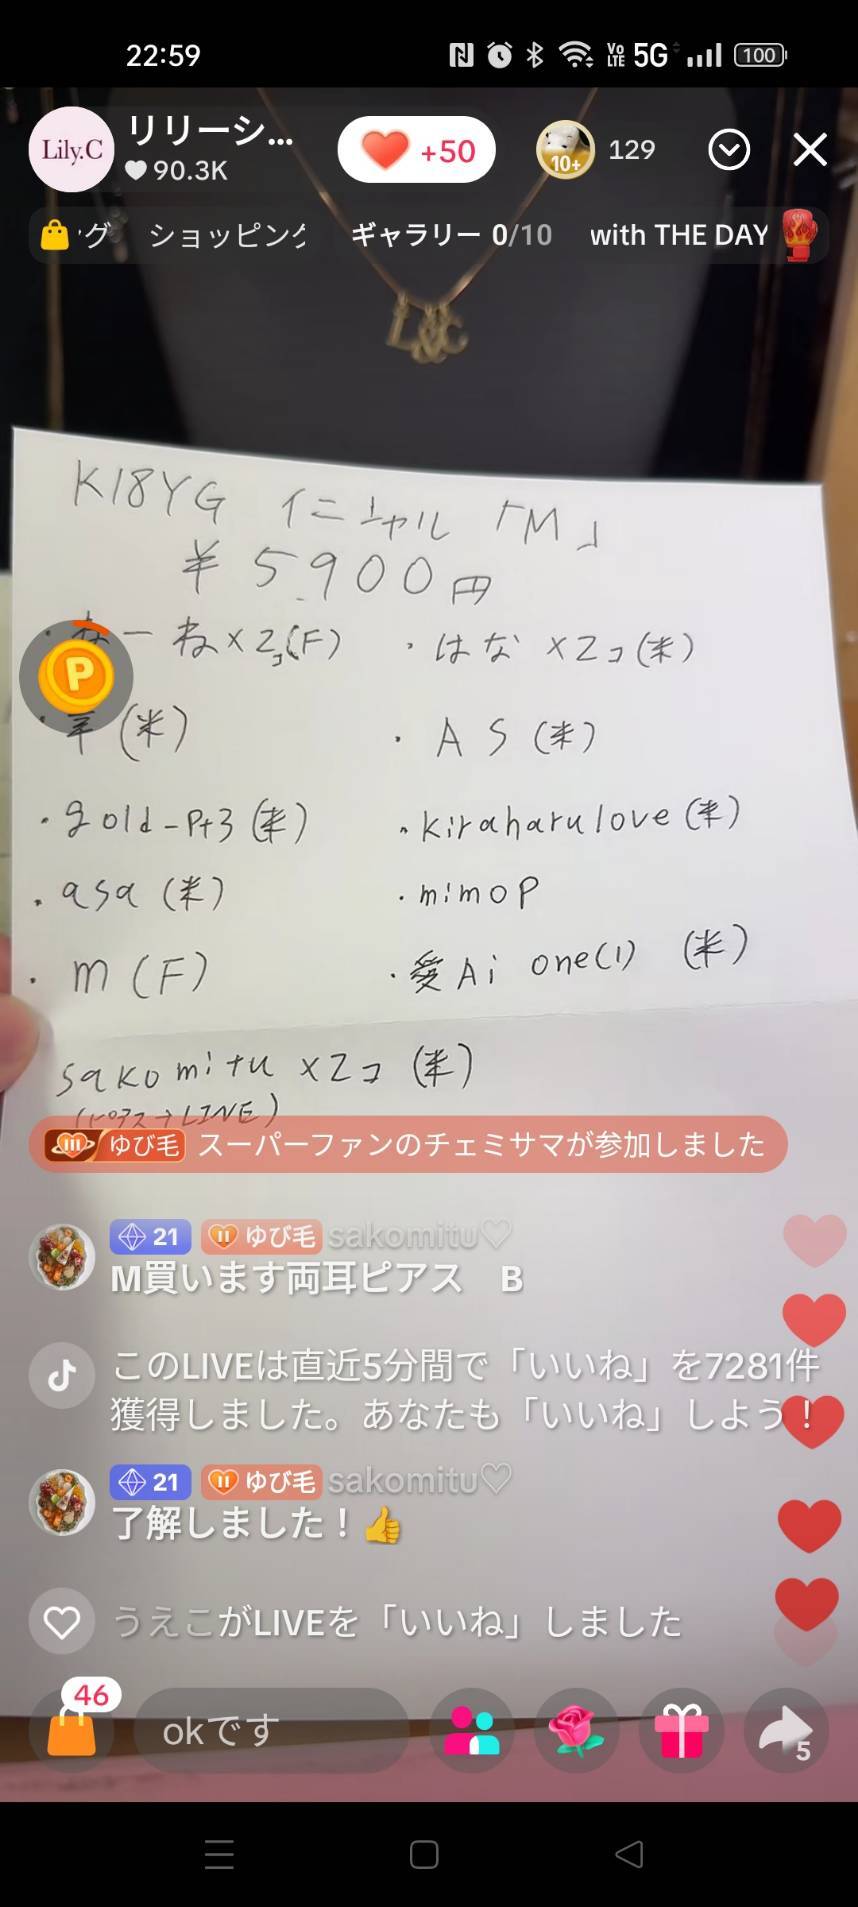 22:59
Vo LTE 5G 100
Lily.C
リリーシ...
90.3K
+50
10+
129
グ ショッピング ギャラリー 0/10 with THE DAY
L&C
K18YG イニシャル 「M」
¥5,900円
・ねーね×2コ(F) ・はな ×2コ(米)
P
・羊(米) ・AS(米)
・gold-Pt3(米) ・kiraharulove(米)
・asa(米) ・mimoP
・m(F) ・愛Ai one(1) (米)
sakomitu ×2コ (米)
(ピアス→LINE)
III ゆび毛 スーパーファンのチェミサマが参加しました
21 II ゆび毛 sakomitu♡
M買います両耳ピアス B
このLIVEは直近5分間で「いいね」を7281件
獲得しました。あなたも「いいね」しよう！
21 II ゆび毛 sakomitu♡
了解しました！👍
うえこがLIVEを「いいね」しました
46
okです
5